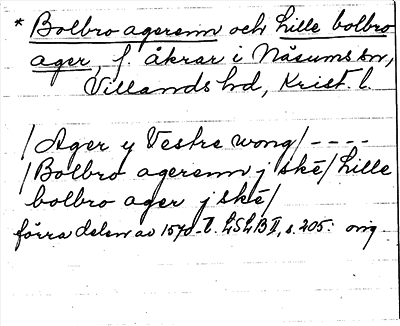 * Bolbro agerenn och Lille bolbro
ager, f. åkrar i Näsums sn,
Villands hd, Krist. l.
/Ager y Vestre wong/ - - - -
/Bolbro agerenn j skē/ Lille
bolbro ager j skē/
förra delen av 1570-t. LSLB II, s. 205. orig